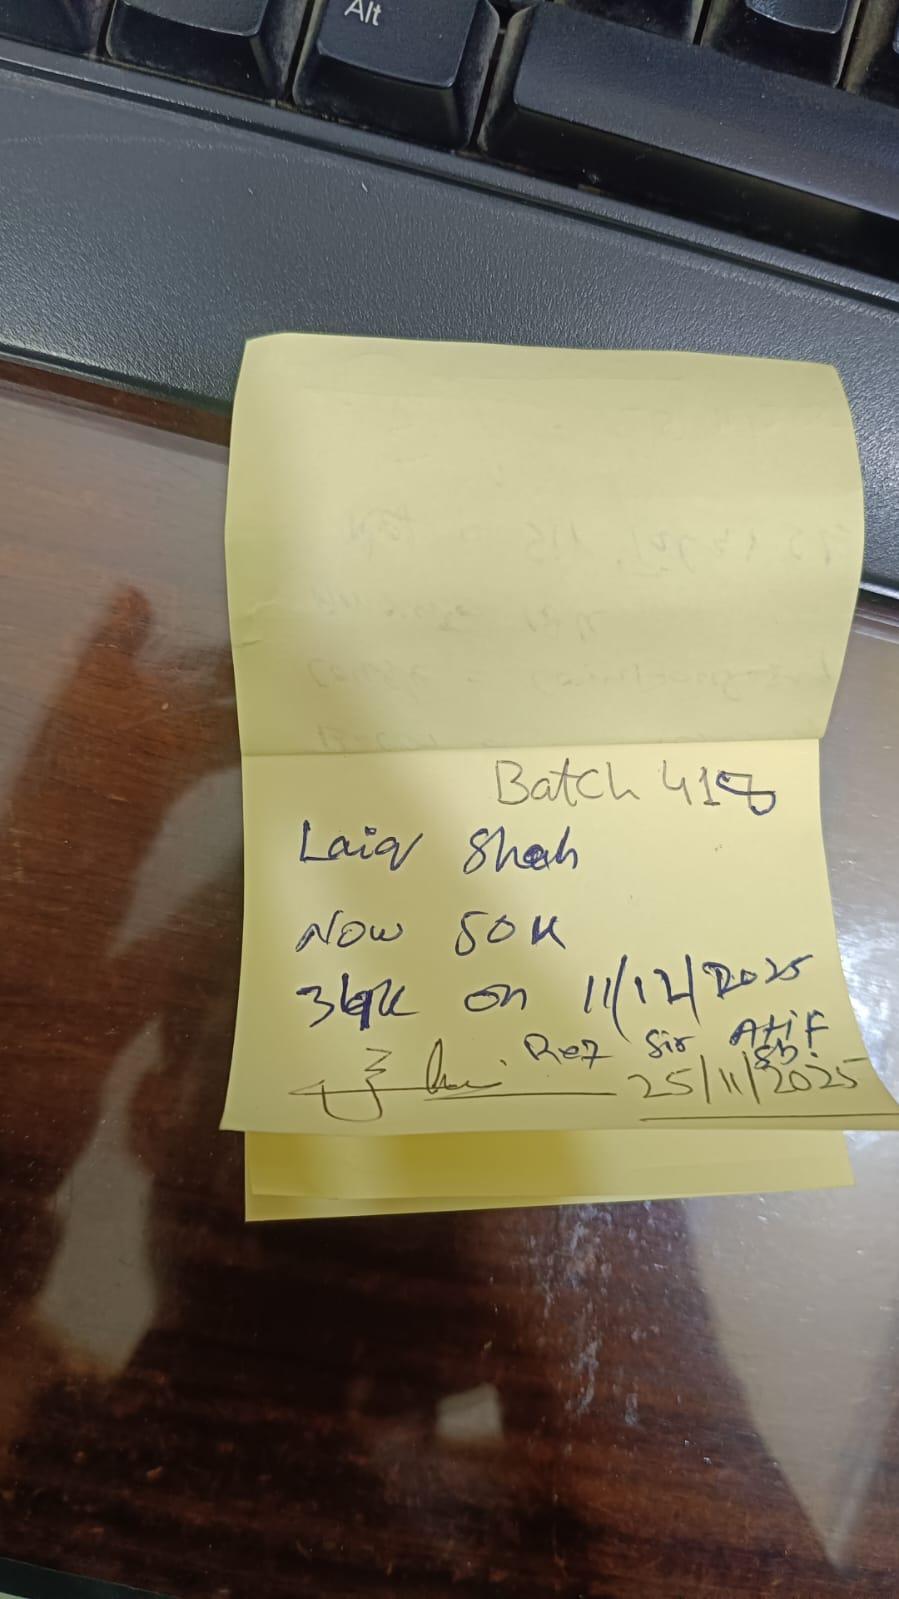 Alt
Batch 418
Laiq Shah
Now 50K
on 11/12/2025
Ref Sir Atif
Sb.
25/11/2025